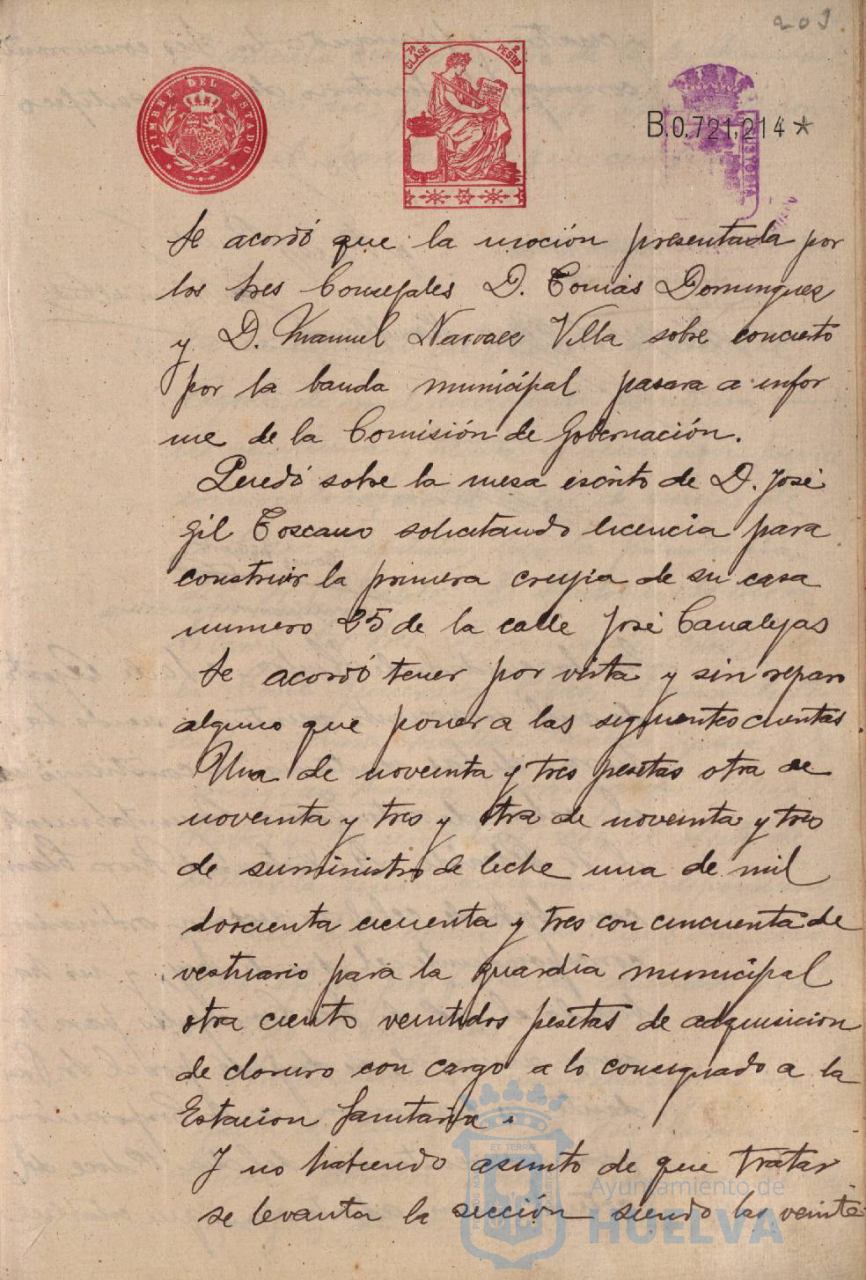 203
TIMBRE DEL ESTADO
7ª CLASE 2 PESTAS
B.0.721,214 *
CUSTODIA
Se acordó que la moción presentada por
los tres Consejales D. Tomás Dominguez
y D. Manuel Narvaez Villa sobre concierto
por la banda municipal pasara a infor
me de la Comisión de Gobernación.
Quedó sobre la mesa escrito de D. José
Gil Toscano solicitando licencia para
construir la primera crujia de su casa
numero 25 de la calle José Canalejas
Se acordó tener por vista y sin reparo
alguno que poner a las siguientes cuentas
Una de noventa y tres pesetas otra de
noventa y tres y otra de noventa y tres
de suministro de leche una de mil
doscienta cicuenta y tres con cincuenta de
vestuario para la guardia municipal
otra ciento veintidos pesetas de adquisicion
de cloruro con cargo a lo consignado a la
Estacion Sanitaria.
Y no habiendo asunto de que tratar
se levanta la sección siendo las veinte
Ayuntamiento de
HUELVA